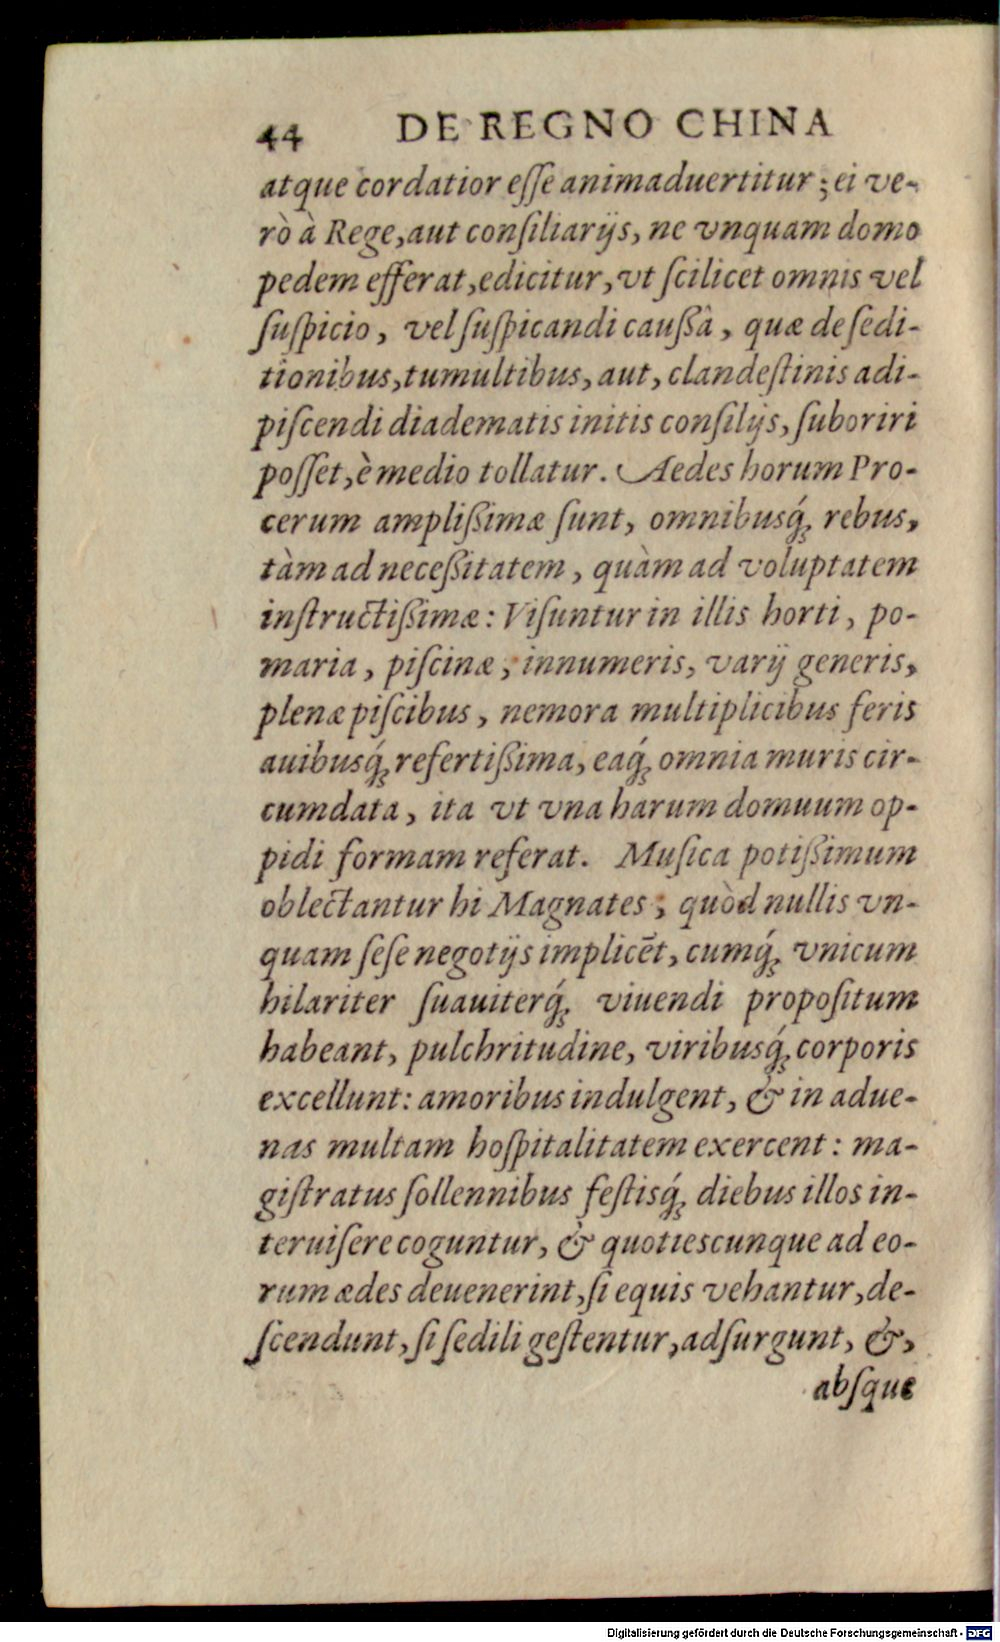 44 DE REGNO CHINA
atque cordatior eſſe animaduertitur; ei ve-
rò à Rege, aut conſiliarijs, ne vnquam domo
pedem efferat, edicitur, vt ſcilicet omnis vel
ſuſpicio, vel ſuſpicandi cauſſâ, quæ de ſedi-
tionibus, tumultibus, aut, clandeſtinis adi-
piſcendi diadematis initis conſilijs, ſuboriri
poſſet, è medio tollatur. Aedes horum Pro-
cerum ampliſſimæ ſunt, omnibusq́ꝫ rebus,
tàm ad neceſſitatem, quàm ad voluptatem
inſtructiſſimæ: Viſuntur in illis horti, po-
maria, piſcinæ, innumeris, varij generis,
plenæ piſcibus, nemora multiplicibus feris
auibusq́ꝫ refertiſſima, eaq́ꝫ omnia muris cir-
cumdata, ita vt vna harum domuum op-
pidi formam referat. Muſica potiſſimum
oblectantur hi Magnates; quòd nullis vn-
quam ſeſe negotijs implicēt, cumq́ꝫ vnicum
hilariter ſuauiterq́ꝫ viuendi propoſitum
habeant, pulchritudine, viribusq́ꝫ corporis
excellunt: amoribus indulgent, & in adue-
nas multam hoſpitalitatem exercent: ma-
giſtratus ſollennibus feſtisq́ꝫ diebus illos in-
teruiſere coguntur, & quotieſcunque ad eo-
rum ædes deuenerint, ſi equis vehantur, de-
ſcendunt, ſi ſedili geſtentur, adſurgunt, &,
abſque
Digitalisierung gefördert durch die Deutsche Forschungsgemeinschaft - DFG